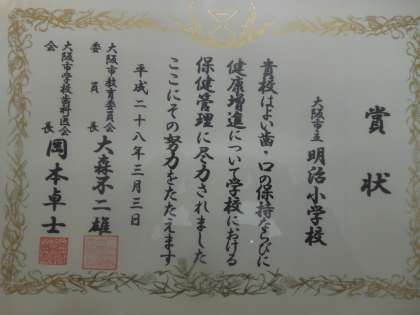 賞状
大阪市立 明治小学校
貴校はよい歯・口の保持ならびに
健康増進について学校における
保健管理に尽力されました
ここにその努力をたたえます
平成二十八年三月三日
大阪市教育委員会
委員長 大森不二雄
大阪市学校歯科医会
会長 岡本卓士